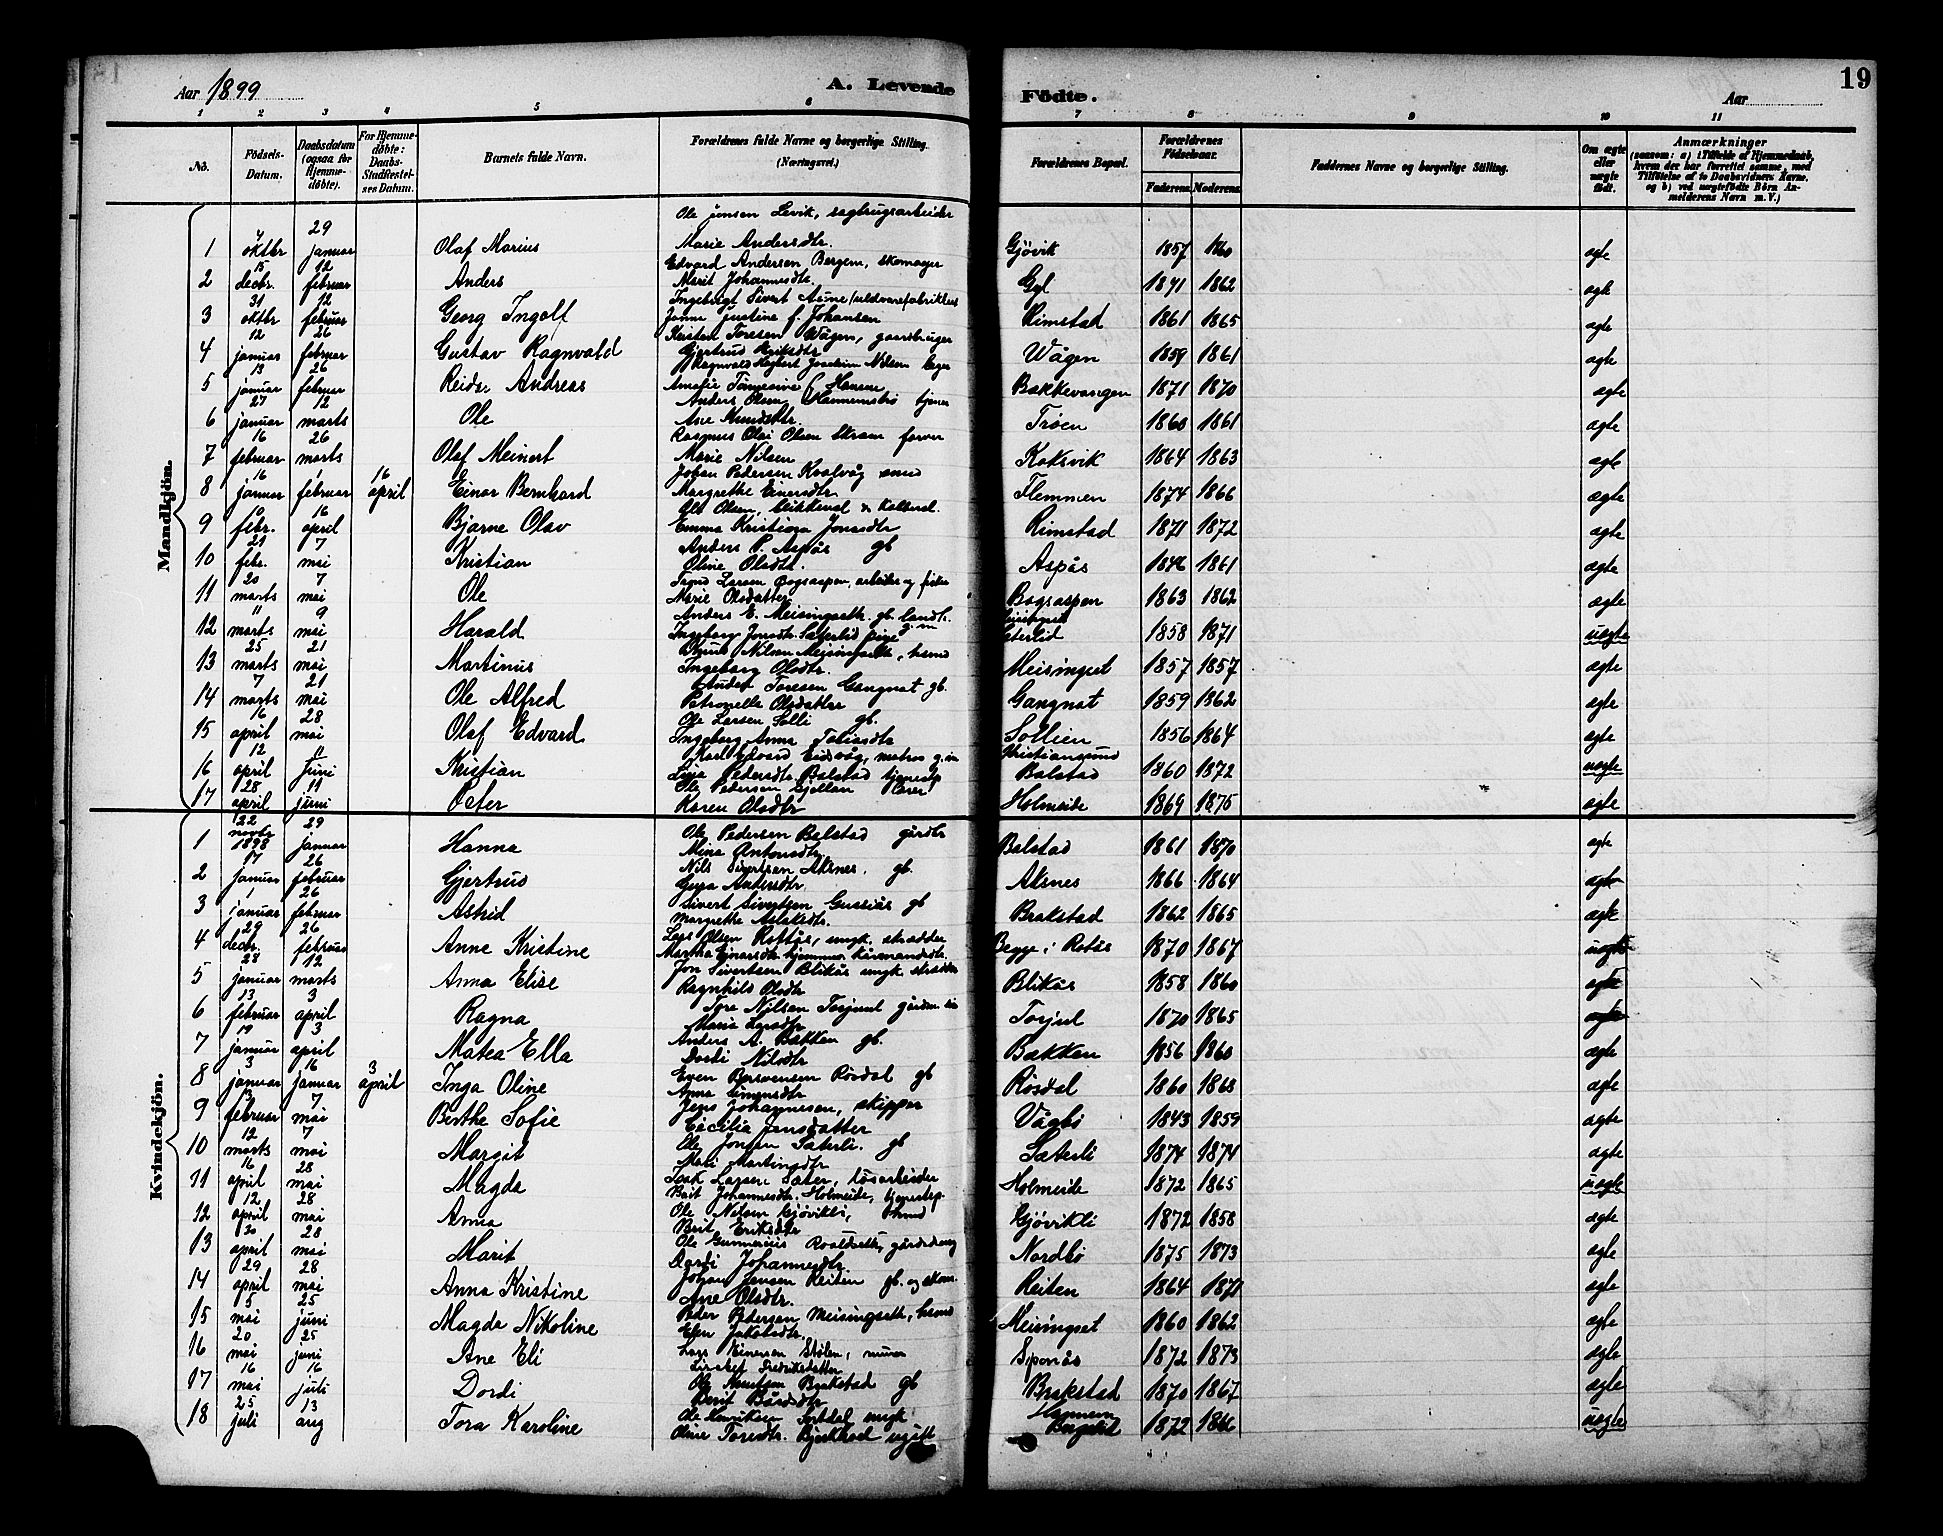 Aar 1899
A. Levende
Födte.
Aar
19
1 2 3 4 5 6 7 8 9 10 11
No.
Födsels-Datum.
Daabsdatum (ogsaa for Hjemmedöbte).
For Hjemmedöbte: Daabs-Stadfæstelses Datum.
Barnets fulde Navn.
Forældrenes fulde Navne og borgerlige Stilling. (Næringsvei.)
Forældrenes Bopæl.
Forældrenes Födselsaar.
Faderens. Moderens.
Faddernes Navne og borgerlige Stilling.
Om ægte eller uægte födt.
Anmærkninger
(saasom: a) i Tilfælde af Hjemmedaab, hvem der har forrettet samme, med Tilföielse af to Daabsvidners Navne, og b) ved uægtefödte Börn Anmelderens Navn m. V.)
Mandkjön.
1 oktbr 29 januar Olaf Marius Ole Levik, sagbrugsarbeider Marie Andersdtr. Gjøvik 1857 1860 ægte
2 15 decbr. 12 februar Anders Edvard Andersen Bergem, skomager Marit Johannesdtr. Gyl 1871 1862 ægte
3 31 oktbr 12 februar Georg Ingolf Ingebrigt Sivert Aune Justine f. Johansen Rimstad 1861 1865 ægte
4 12 januar 26 februar Gustav Ragnvald Kristen Toresen Wågen, gaardbruger Gjertrud Wågen 1859 1861 ægte
5 13 januar 26 februar Reidar Andreas Ragnvald Joachim Nilsen Hansen Bakkevangen 1871 1870 ægte
6 27 januar 12 marts Ole Anders Olsen tjener Ane Knudsdtr. Trøen 1860 1861 ægte
7 16 februar 26 marts Olaf Meinert Rasmus Olai Olsen farver Marie Nilsen Koksvik 1864 1863 ægte
8 16 januar 1 februar 16 april Einar Bernhard Johan Pedersen Kvalvåg smed Margrethe Einersdtr. Flemmen 1874 1866 ægte
9 febr. 16 april Bjarne Olav Olsen, Emma Kristiana Jonasdtr Rimstad 1871 1872 ægte
10 21 febr. 7 mai Kristian Anders P. Aspås gb Oline Olsdtr. Aspås 1861 ægte
11 20 marts 7 mai Ole Larsen Bograspen, arbeider og fisker Marie Olsdatter Bograspen 1863 1862 ægte
12 11 marts 9 mai Harald Anders E. Meisingseth gb. Ingeborg Jonsdtr. Sæterlid pige Sæterlid 1858 1871 uægte
13 25 marts 21 mai Martinus Nilsen Meisingseth, husmd Ingeborg Olsdtr. Meisingset 1857 1857 ægte
14 7 marts 21 mai Ole Alfred Anders Toresen Gangnat gb. Petronelle Olsdatter Gangnat 1859 1862 ægte
15 16 april 28 mai Olaf Edvard Ole Larsen Solli gb. Ingeborg Anna Tobiasdtr Sollien 1856 1864 ægte
16 12 april 11 Juni Kristian Karl Edvard Eidsvåg, matros Pedersdtr. Balstad Kristiansund Balstad 1860 1872 uægte
17 28 april 11 juni Peter Ole Pedersen Gjellan lærer Karen Olsdtr Holmeide 1869 1875 ægte
Kvindekjön.
1 22 novbr 1898 29 januar Hanna Ole Pedersen Balstad gårdbr Mina Antonsdtr. Balstad 1861 1870 ægte
2 17 januar 26 februar Gjertrud Nils Sivertsen Aksnes. gb. Andersdtr Aksnes 1866 1864 ægte
3 1 januar 26 februar Astrid Sivert Sivertsen Gussiås gb Margrethe Aslaksdtr. Brakstad 1862 1865 ægte
4 29 decbr. 26 februar Anne Kristine Lars Olsen Rottås, ungk. skrædder Martha Einarsdtr. hjemmev. Begge i Rotås 1870 1867 uægte
5 28 januar 12 marts Anna Elise Jon Sivertsen Blikås ungk. skrædder Ragnhild Olsdtr Blikås 1858 1860 ægte
6 13 februar 3 april Ragna Tore Nilsen Torjul Marie Larsdtr Torjul 1870 1865 ægte
7 19 januar 3 april Matea Ella Anders A. Bakken gb. Dordi Nilsdtr Bakken 1856 1860 ægte
8 3 januar 16 januar 3 april Inga Oline Even Røsdal gb Anna Simonsdtr Røsdal 1860 1868 ægte
9 13 februar 7 mai Berthe Sofie Jens Johannesen, skipper Cecilia Jensdatter Vågbø 1843 1859 ægte
10 12 marts 7 mai Margit Ole Jonsen Sæterli. gb Mari Martinsdtr Sæterli 1874 1874 ægte
11 16 april 28 mai Magda Isak Larsen Sæter, løsarbeider Brit Johannesdtr. Holmeide, tjenestep. Holmeide 1872 1865 uægte
12 12 april 28 mai Anna Ole Nilsen Gjøvikli, Brit Eriksdtr Gjøvikli 1872 1858 ægte
13 30 april 28 mai Marit Ole Gunnerius Roaldseth, gårdsdreng Dordi Johannesdtr. Nordbø 1875 1873 ægte
14 29 april 28 mai Anna Kristine Johan Jensen Reiten gb. og skom. Ane Olsdtr. Reiten 1864 1871 ægte
15 5 mai 25 juni Magda Nikoline Peder Pedersen Meisingseth, husmd Elen Jakobsdtr. Meisingset 1860 1862 ægte
16 20 mai 25 juni Ane Eli Lars Einersen Stølen, murer Lisabet Fredriksdatter Siponås 1872 1873 ægte
17 16 mai 16 juli Dordi Ole Knutsen Brakstad gb Berit Bårdsdtr Brakstad 1870 1867 ægte
18 25 juli 13 aug Tora Karoline Ole Henriksen ungk Oline Toresdtr. ugift 1872 1866 uægte